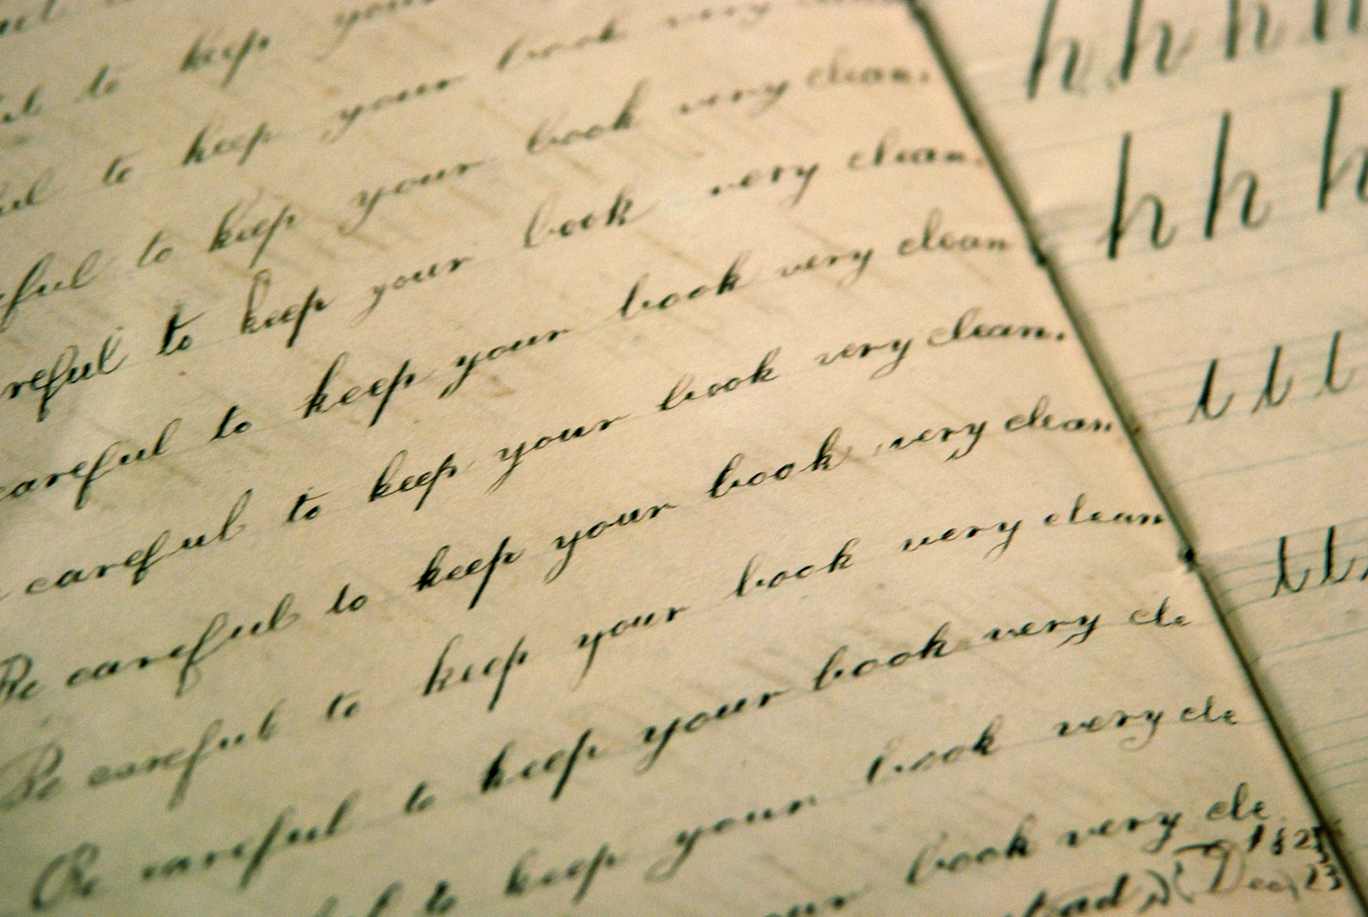 to keep
to keep your book very
ful to keep your book very clean.
eful to keep your book very clean.
reful to keep your book very clean
careful to keep your book very clean.
careful to keep your book very clean
Be careful to keep your book very clean
Be careful to keep your book very cle
Be careful to keep your book very cle
to keep your book very cle
your
Dec 23
h h h h
h h h
t t t
t t